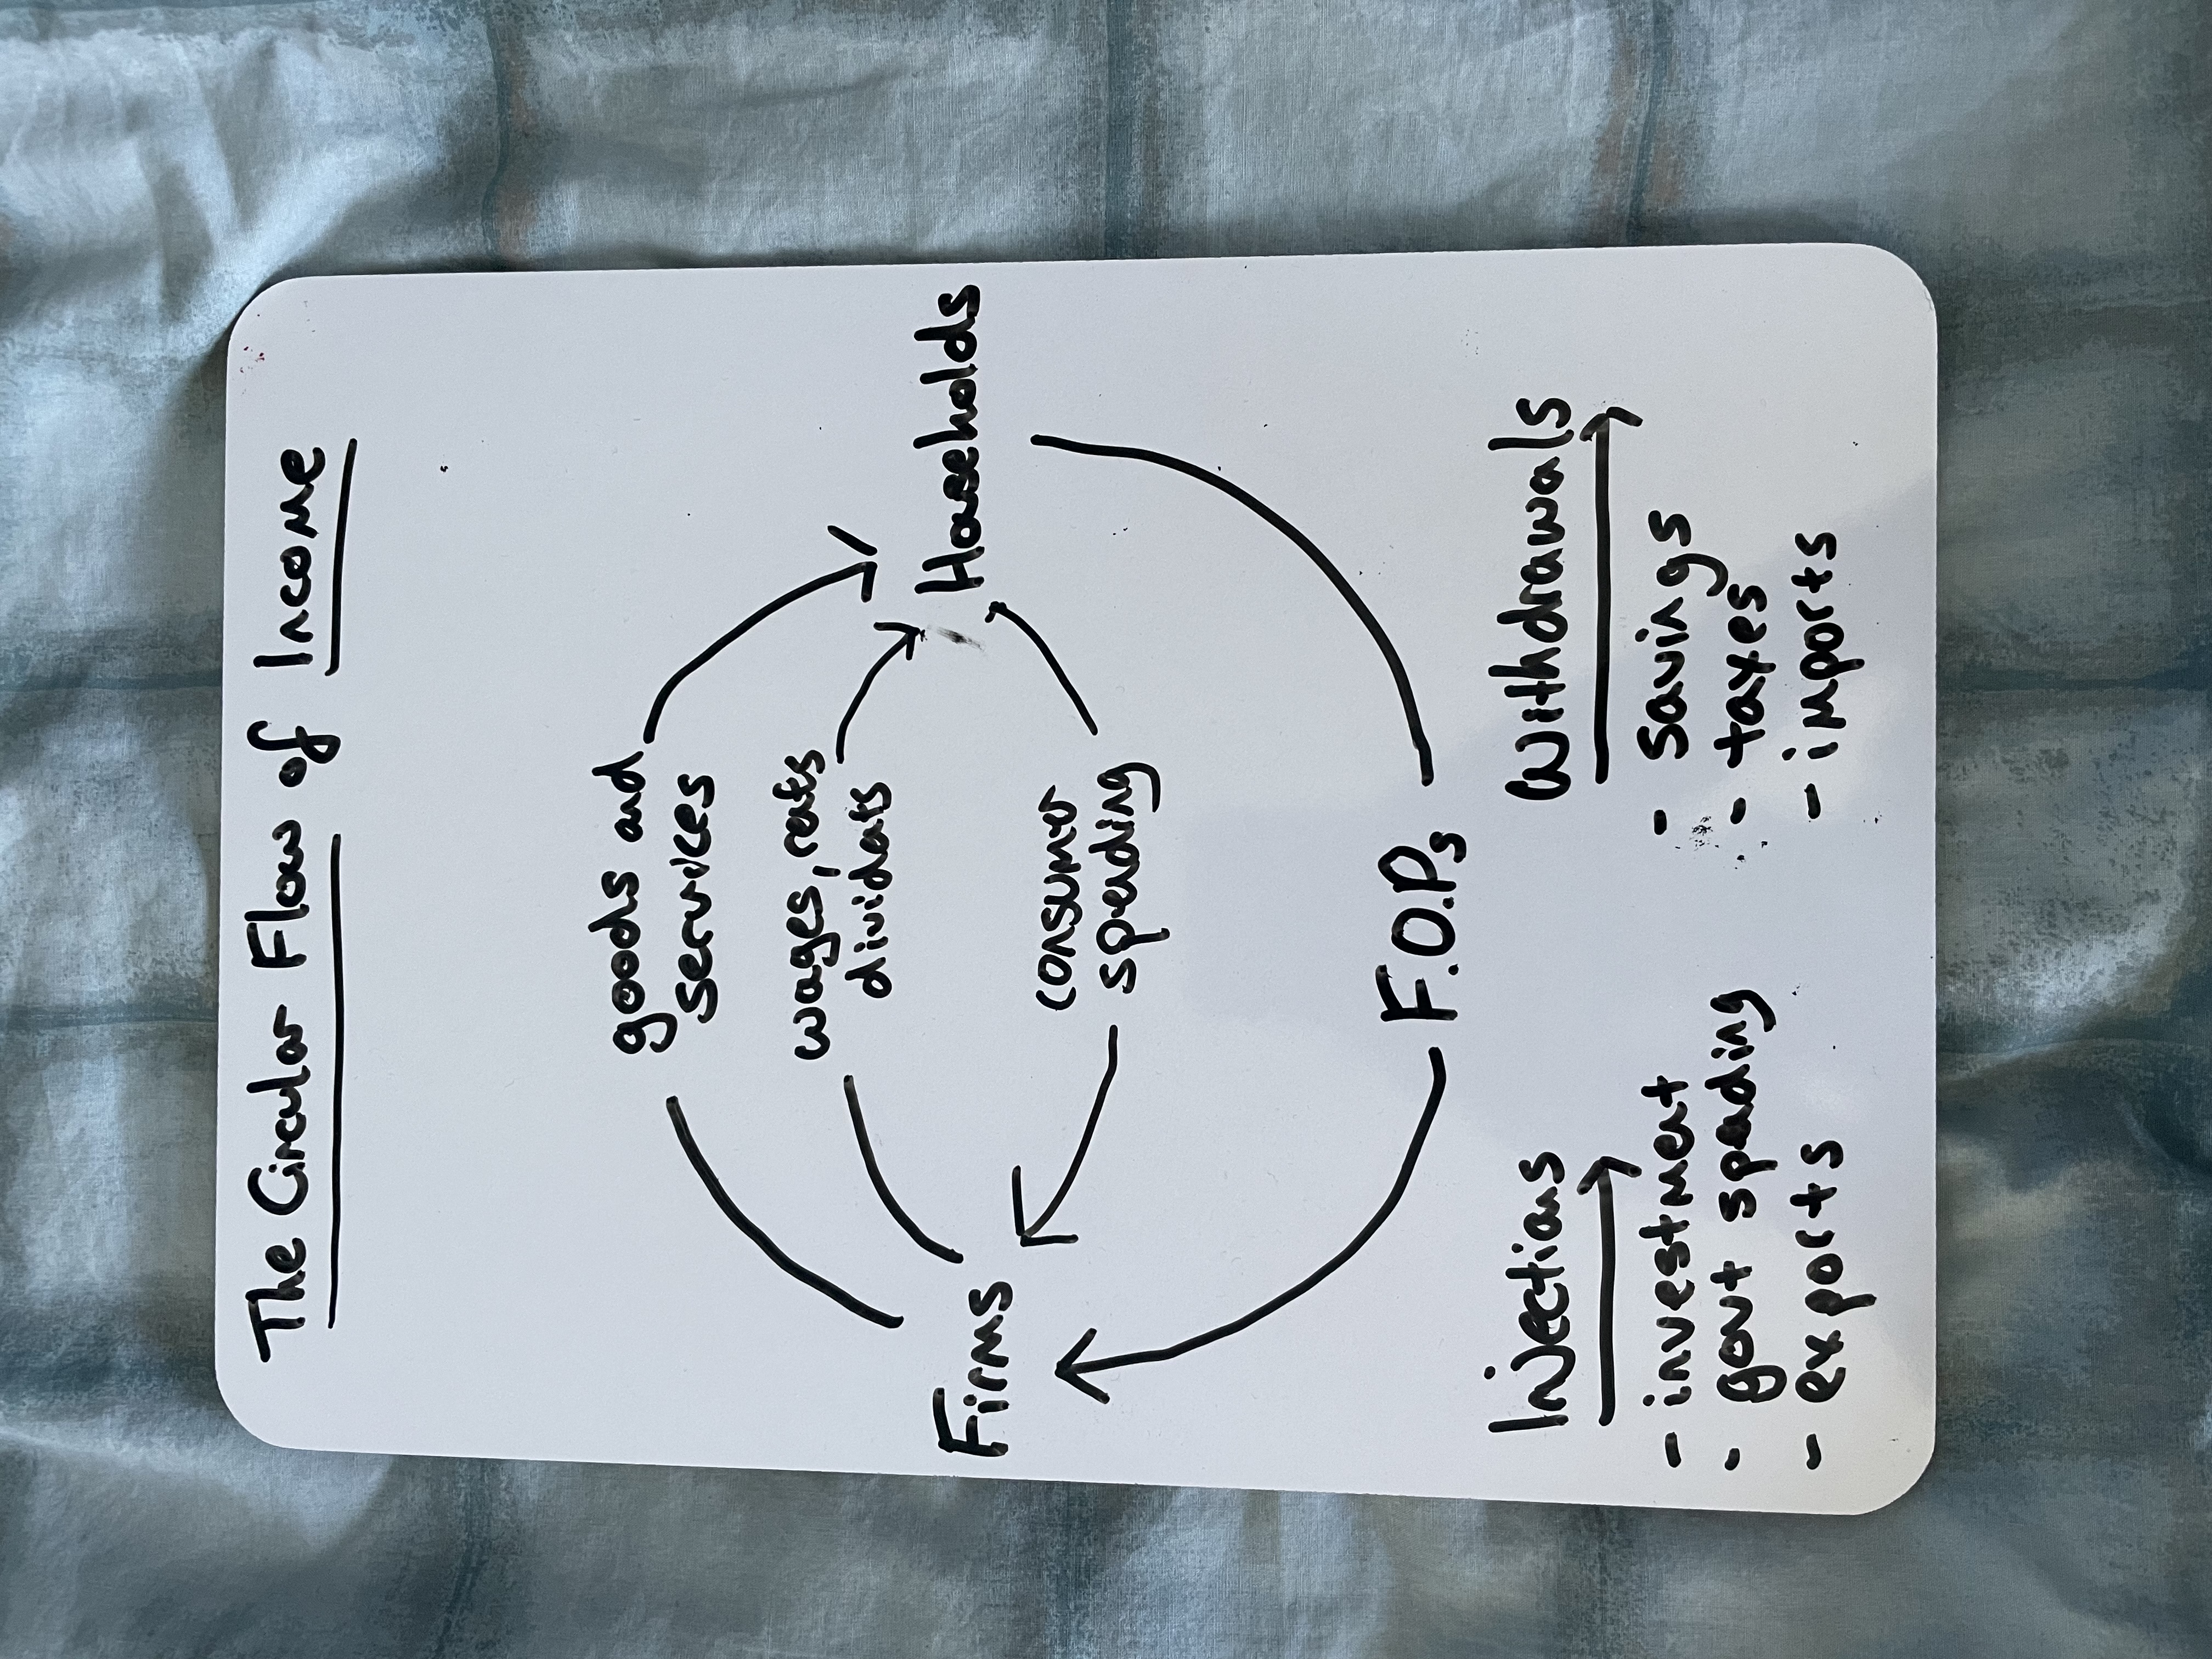 The Circular Flow of Income
goods and
services
wages, rents
dividents
Firms
Households
consumer
spending
F.O.Ps
Injections
- investment
- govt spending
- exports
Withdrawals
- savings
- taxes
- imports